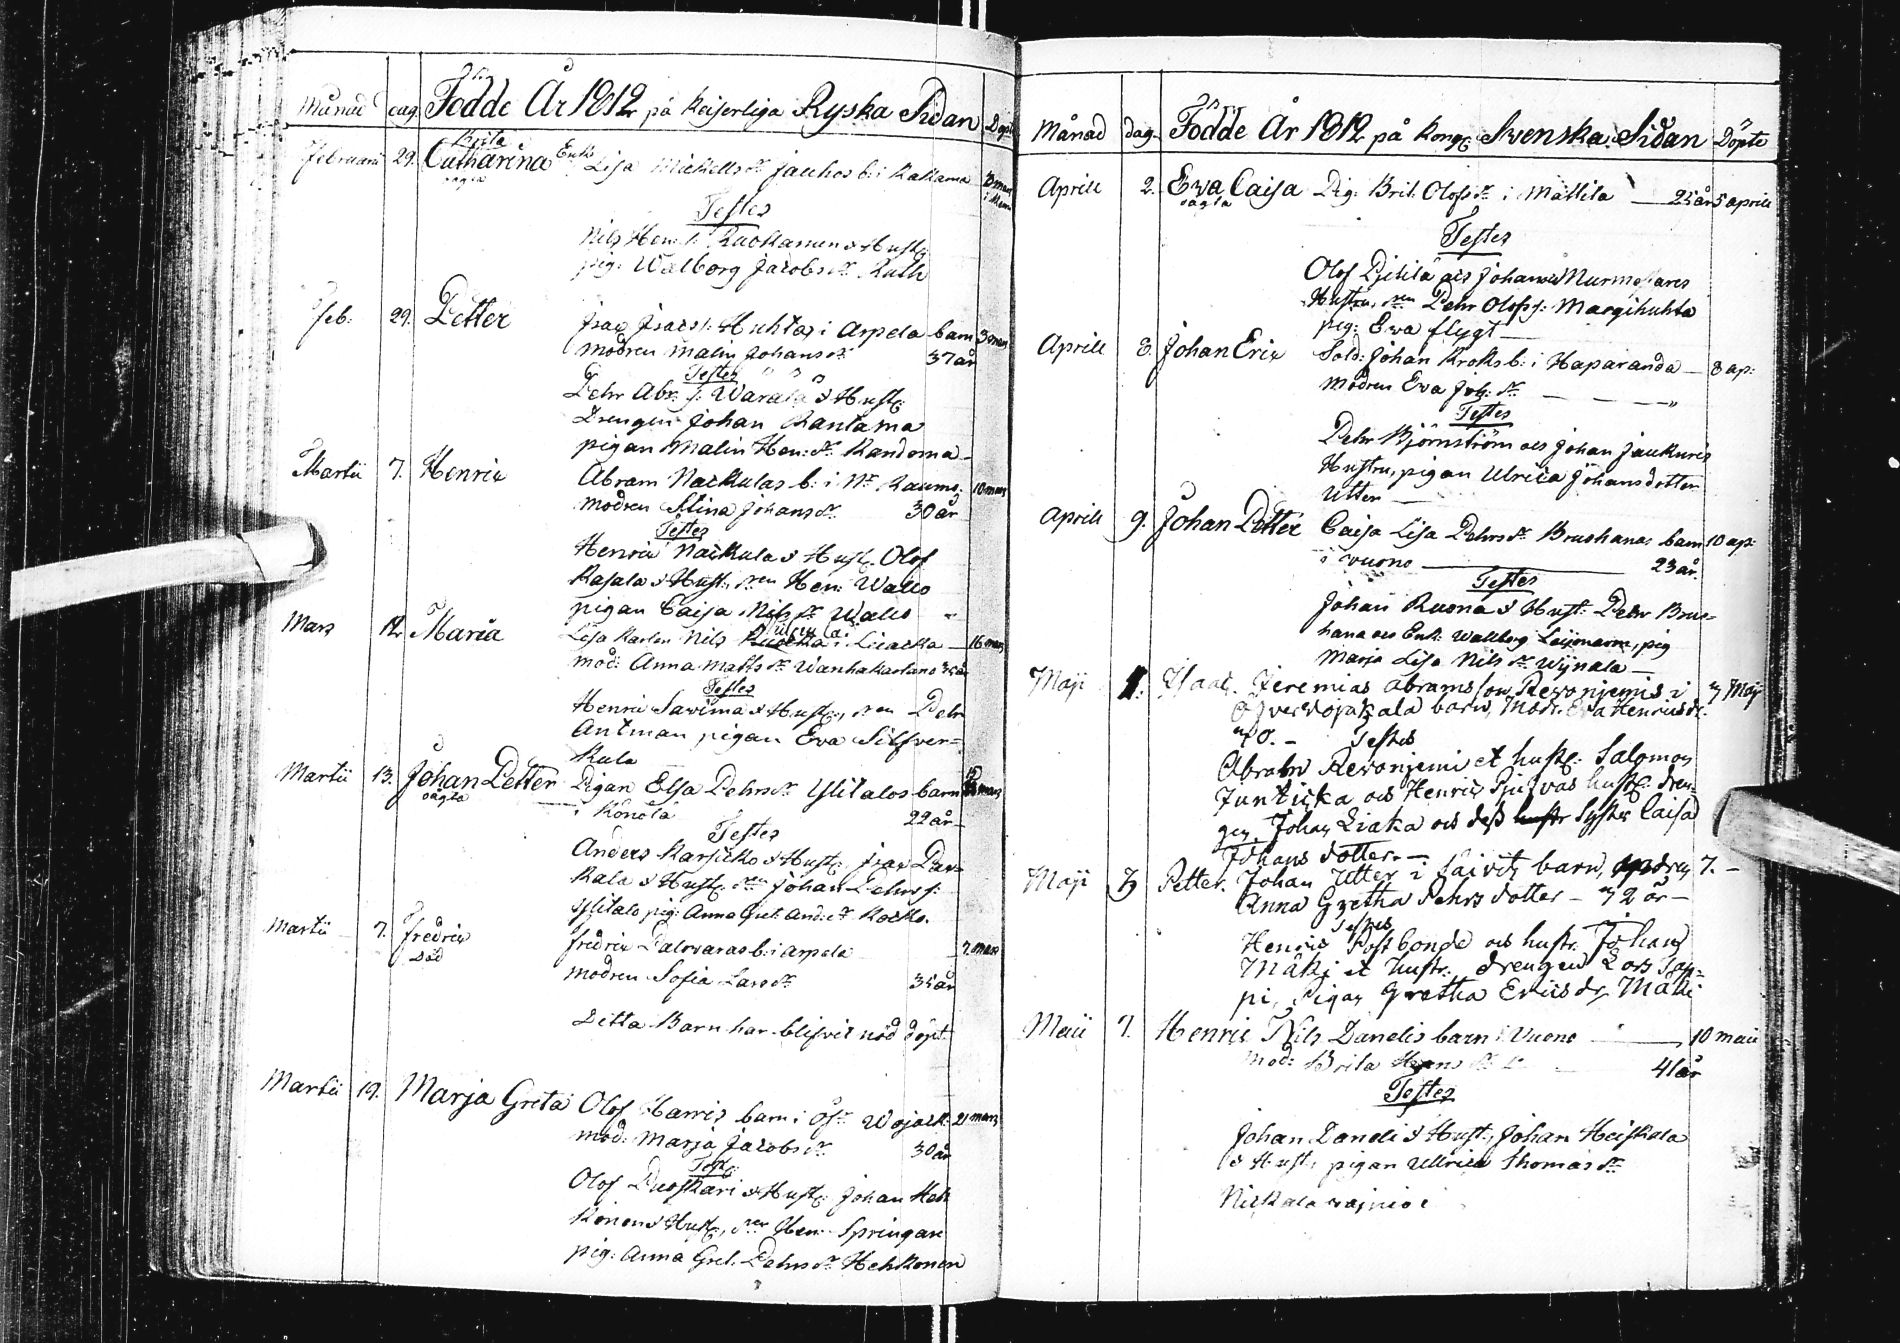 Månad dag. Födde År 1812 på Keiserliga Ryska Sidan Döpt
Februarii 29. Brita Catharina Enk. Lisa Mickelsdr Jauhos b: i Kakama
oägta
Testes
Nils Hen: s: Ruokanen & Hust:
pig: Walborg Jacobsdr Ruth
Feb: 29. Petter Isac Isacs s: Huhtas i Arpela barn 3 mars
modren Malin Johansdr 37 år
Testes
Pehr Abr: s: Warala & Hust:
Drengen Johan Rantama
pigan Malin Hen: dr Randoma
Martii 7. Henric Abram Nackulas b: i Nr Raumo 10 mars
modren Stina Johansdr 30 år
Testes
Henric Nackula & Hust: Olof
Kasala & Hust: Hen: Wallo
pigan Caisa Nilsdr Wallo
Mars 12 Maria Leja Karlen Nils i Liacka 16 mars
mod: Anna Matsdr Wanhakartano
Testes
Henric Sawima & Hust:, Pehr
Antman pigan Eva Silfver=
kula
Martii 13. Johan Petter Pigan Elsa Pehrsdr Ylitalos barn
oägta i Könölä 22 år
Testes
Anders Karsicko & Hust: Isac Par=
kala & Hust: Johan Pehrs s:
Ylitalo pig: Anna Gret: And: dr Kocko.
Martii 7. Fredric Fredric Palovaras b: i Arpela 7 mars
död modren Sofia Larsdr 35 år
Detta Barn har blifvit nöd döpt
Martii 19. Marja Greta Olof Harris barn i Öfr Wojack: 21 mars
mod: Marja Jacobsdr 30 år
Test:
Olof Puoskari & Hust: Johan Heh
konen & Hust:, Hen: Springare
pig: Anna Gret: Pehrsdr Hehkonen
Månad dag. Födde År 1812 på Kongl: Svenska Sidan Döpte
Aprill 2. Eva Caisa Pig: Brit: Olofsdr i Mattila 25 år 5 aprill
oägta
Testes
Olof Pitilä och Johan Nurmosares
Hustru, Pehr Olofs s: Margihuhta
pig: Eva flygt
Aprill 8. Johan Eric Sold: Johan Kroks b: i Haparanda 8 ap:
modren Eva Joh: dr
Testes
Pehr Björnström och Johan Jaukuris
Hustru, pigan Ulrica Johansdotter
Utter
Aprill 9. Johan Petter Caisa Lisa Pehrsdr Brushanas barn 10 ap:
i Vuono 23 år.
Testes
Johan Ruona & Hust: Pehr Brus=
hana och Enk: Wallborg Leijonarm, pig
Marja Lisa Nilsdr Wijnala
Maji 1. Isaac. Jeremias Abramsson Revonjemis i 3 Maji
Öfver Vojakala barn, Modr. Eva Henricsdr.
40. Testes
Abrah Revonjemi et hust: Salomon
Junticka och Henric Pju vas hust: dren=
gen Johan Liaka och dess hustr Syster Caisa
Johans dotter.
Maji 3 Petter. Johan Utter i Säivis barn, modren 7.
Anna Gretha Pehrs dotter 32 år
Testes
Henric Post bonde och hustr. Johan
Mäki et hustr. drengen Lars Lap=
pi, Pigan Gretha Ericsdr. Mäki
Maii 7. Henric Nils Danelis barn i Vuono 10 maii
Mod: Brita 41 år
Testes
Johan Daneli & Hust, Johan Heiskala
& Hust, pigan Ullrica Thomasdr
Nickala